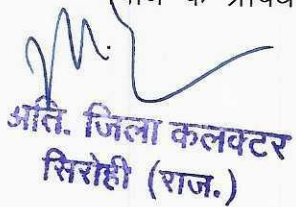 के
अति. जिला कलक्टर
सिरोही (राज.)